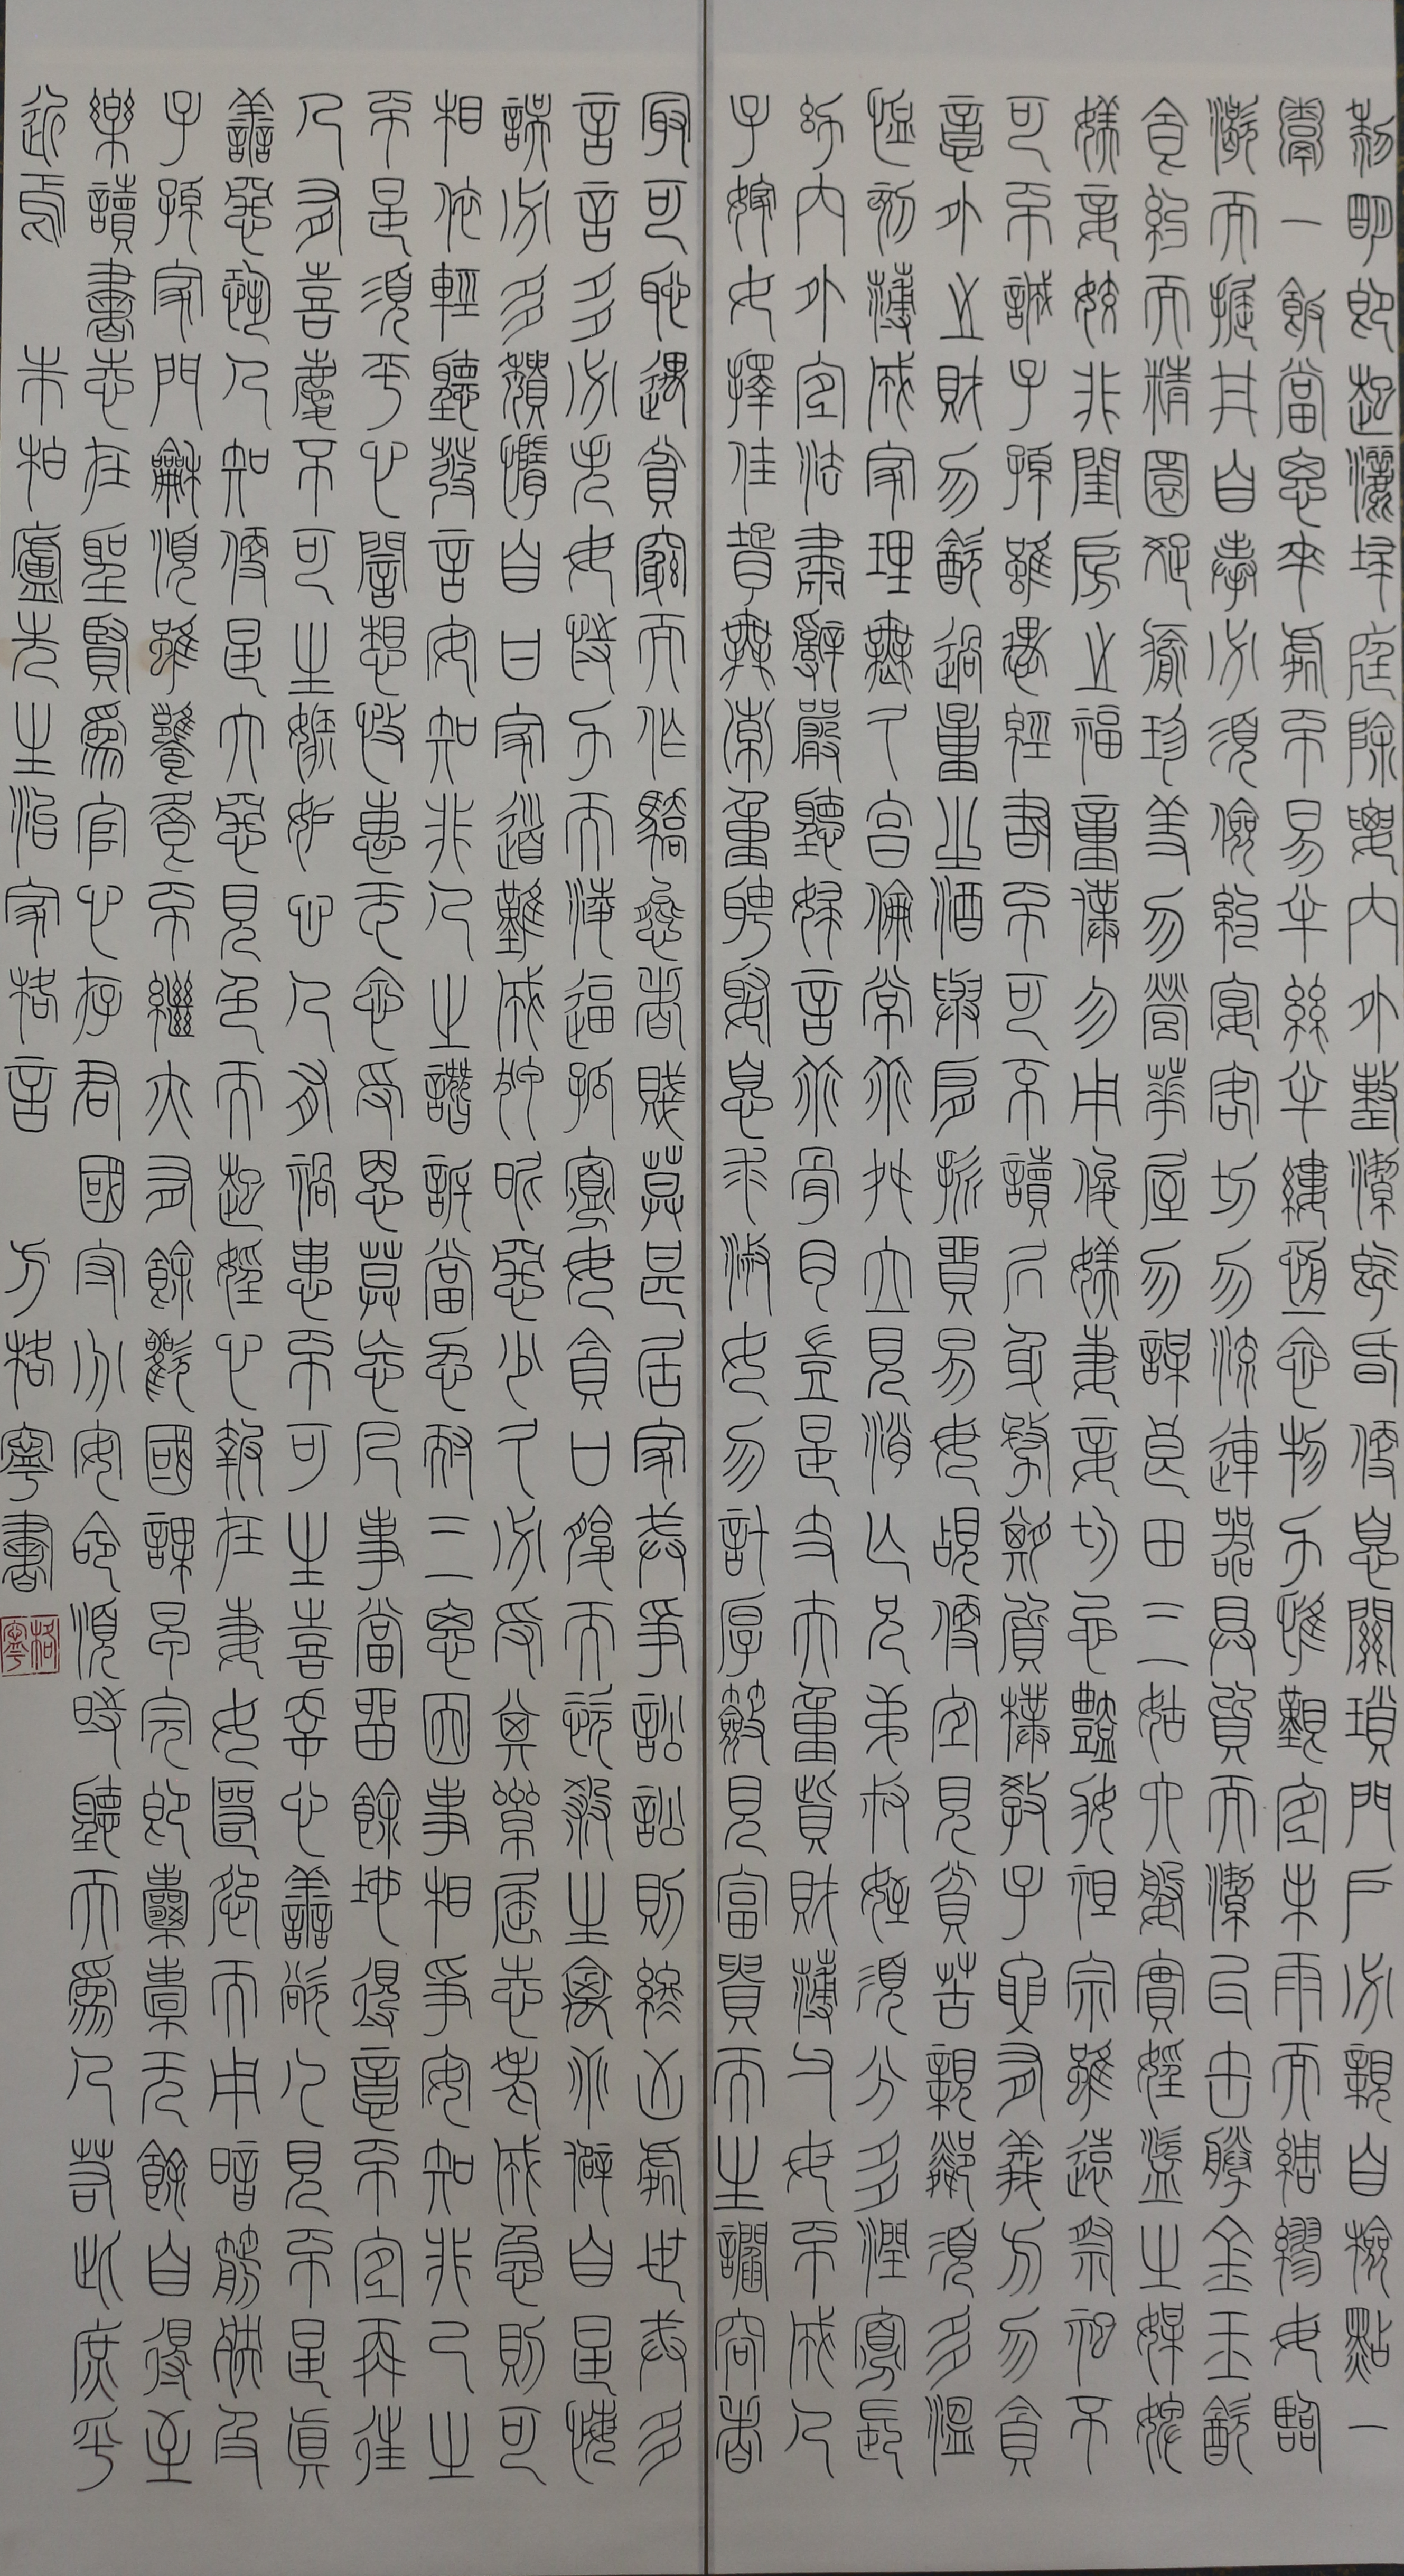 黎明即起灑埽庭除要內外整潔既昏便息關瑣門戶必親自檢點一
粥一飯當思來處不易半絲半縷恆念物力惟艱宜未雨而綢繆毋臨
渴而掘井自奉必須儉約宴客切勿流連器具質而潔瓦缶勝金玉飲
食約而精園蔬愈珍羞勿營華屋勿謀良田三姑六婆實淫盜之媒婢
媄妾嬌非閨房之福童僕勿用俊媄妻妾切忌豔妝祖宗雖遠祭祀不
可不誠子孫雖愚經書不可不讀居身務期質樸教子要有義方勿貪
意外之財勿飲過量之酒與肩挑貿易毋覘便宜見貧苦親鄰須多溫
恤刻薄成家理無久享倫常乖舛立見消亡兄弟叔姪須分多潤寡長
幼內外宜法肅辭嚴聽婦言乖骨肉豈是丈夫重貲財薄父母不成人
子嫁女擇佳婿無索重聘娶息求淑女勿計厚奩見富貴而生諂容者
最可恥遇貧窮而作驕態者賤莫甚居家戒爭訟訟則終凶處世戒多
言言多必失毋恃力而凌逼孤寡毋貪口腹而恣殺生禽乖僻自是悔
誤必多頹惰自甘家道難成狎昵惡少久必受其累屈志老成急則可
相依輕聽發言安知非人之譖訴當忍耐三思因事相爭安知非己之
不是須平心暗想施惠无念受恩莫忘凡事當留餘地得意不宜再往
人有喜慶不可生嫉妒心人有禍患不可生喜幸心善欲人見不是真
善惡恐人知便是大惡見色而起淫心報在妻女匿怨而用暗箭禍及
子孫家門龢順雖饔飧不繼亦有餘歡國課早完即囊橐无餘自得至
樂讀書志在聖賢爲官心存君國守分安命順時聽天爲人若此庶乎
近焉 朱柏廬先生治家格言 方格寧書
格寧